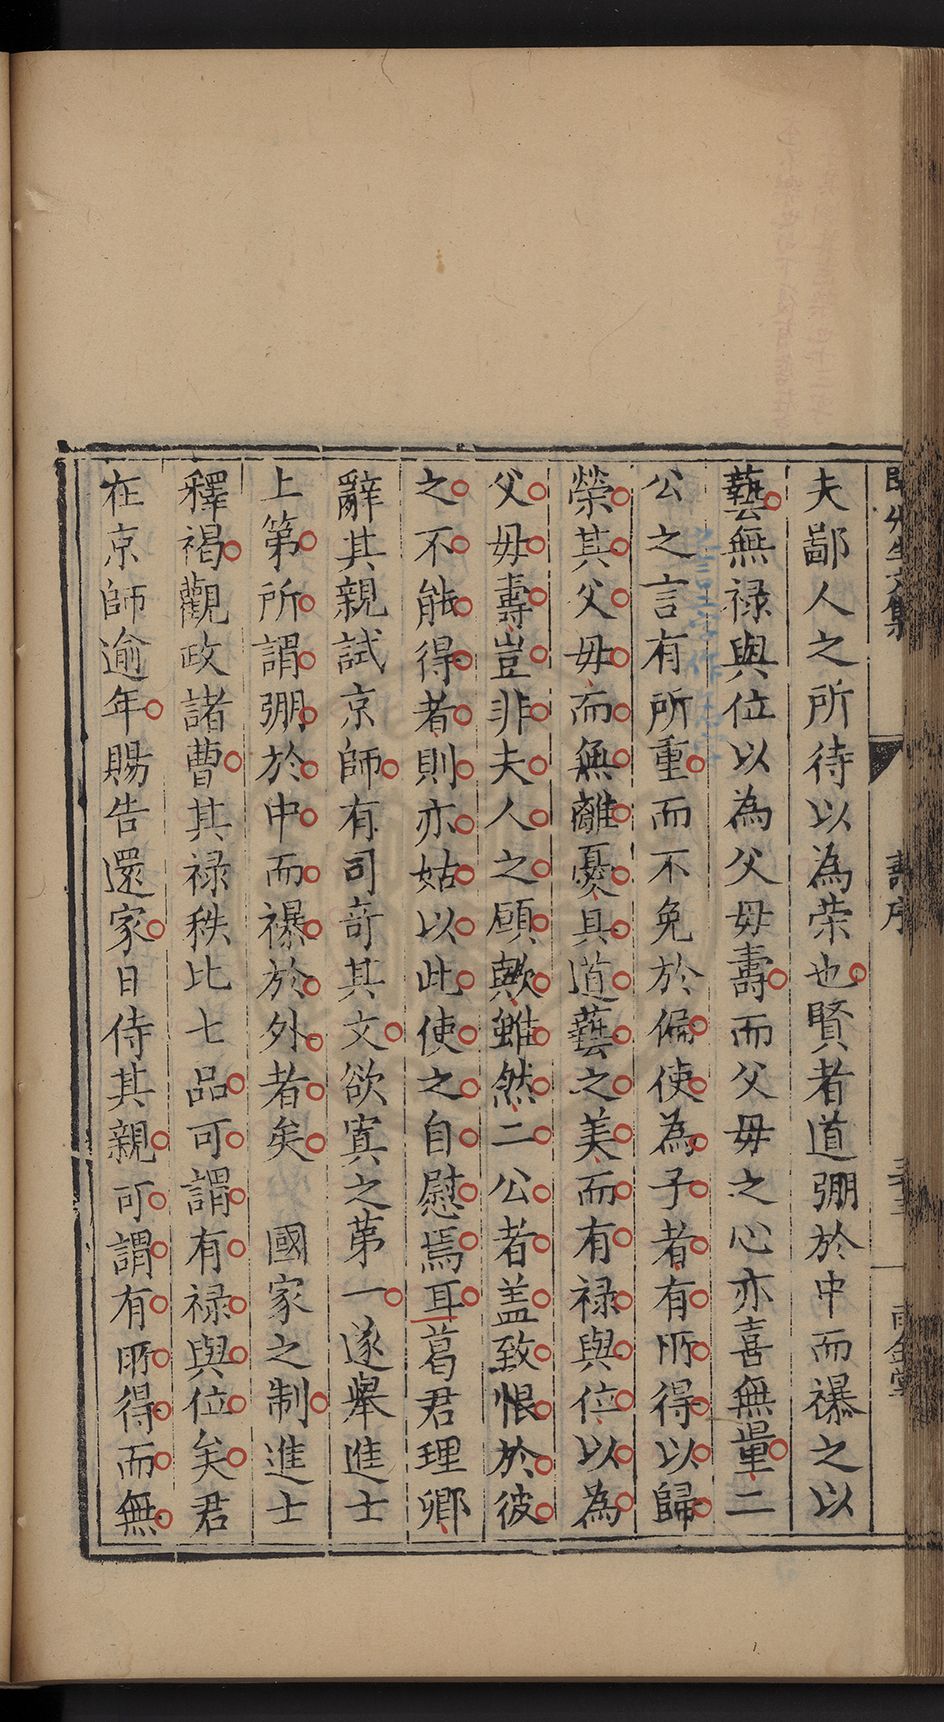 夫鄙人之所待以為荣也賢者道弸於中而襮之以
藝無禄與位以為父毋壽而父毋之心亦喜無量二
公之言有所重而不免於偏使為子者有所得以歸
榮其父毋而無離憂具道藝之美而有禄與位以為
父毋壽豈非夫人之願歟雖然二公者盖致恨於彼
之不能得者則亦姑以此使之自慰焉耳葛君理卿
辭其親試京師有司奇其文欲寘之苐一遂舉進士
上第所謂弸於中而襮於外者矣　國家之制進士
釋褐觀政諸曹其禄秩比七品可謂有禄與位矣君
在京師逾年賜告還家日侍其親可謂有所得而無